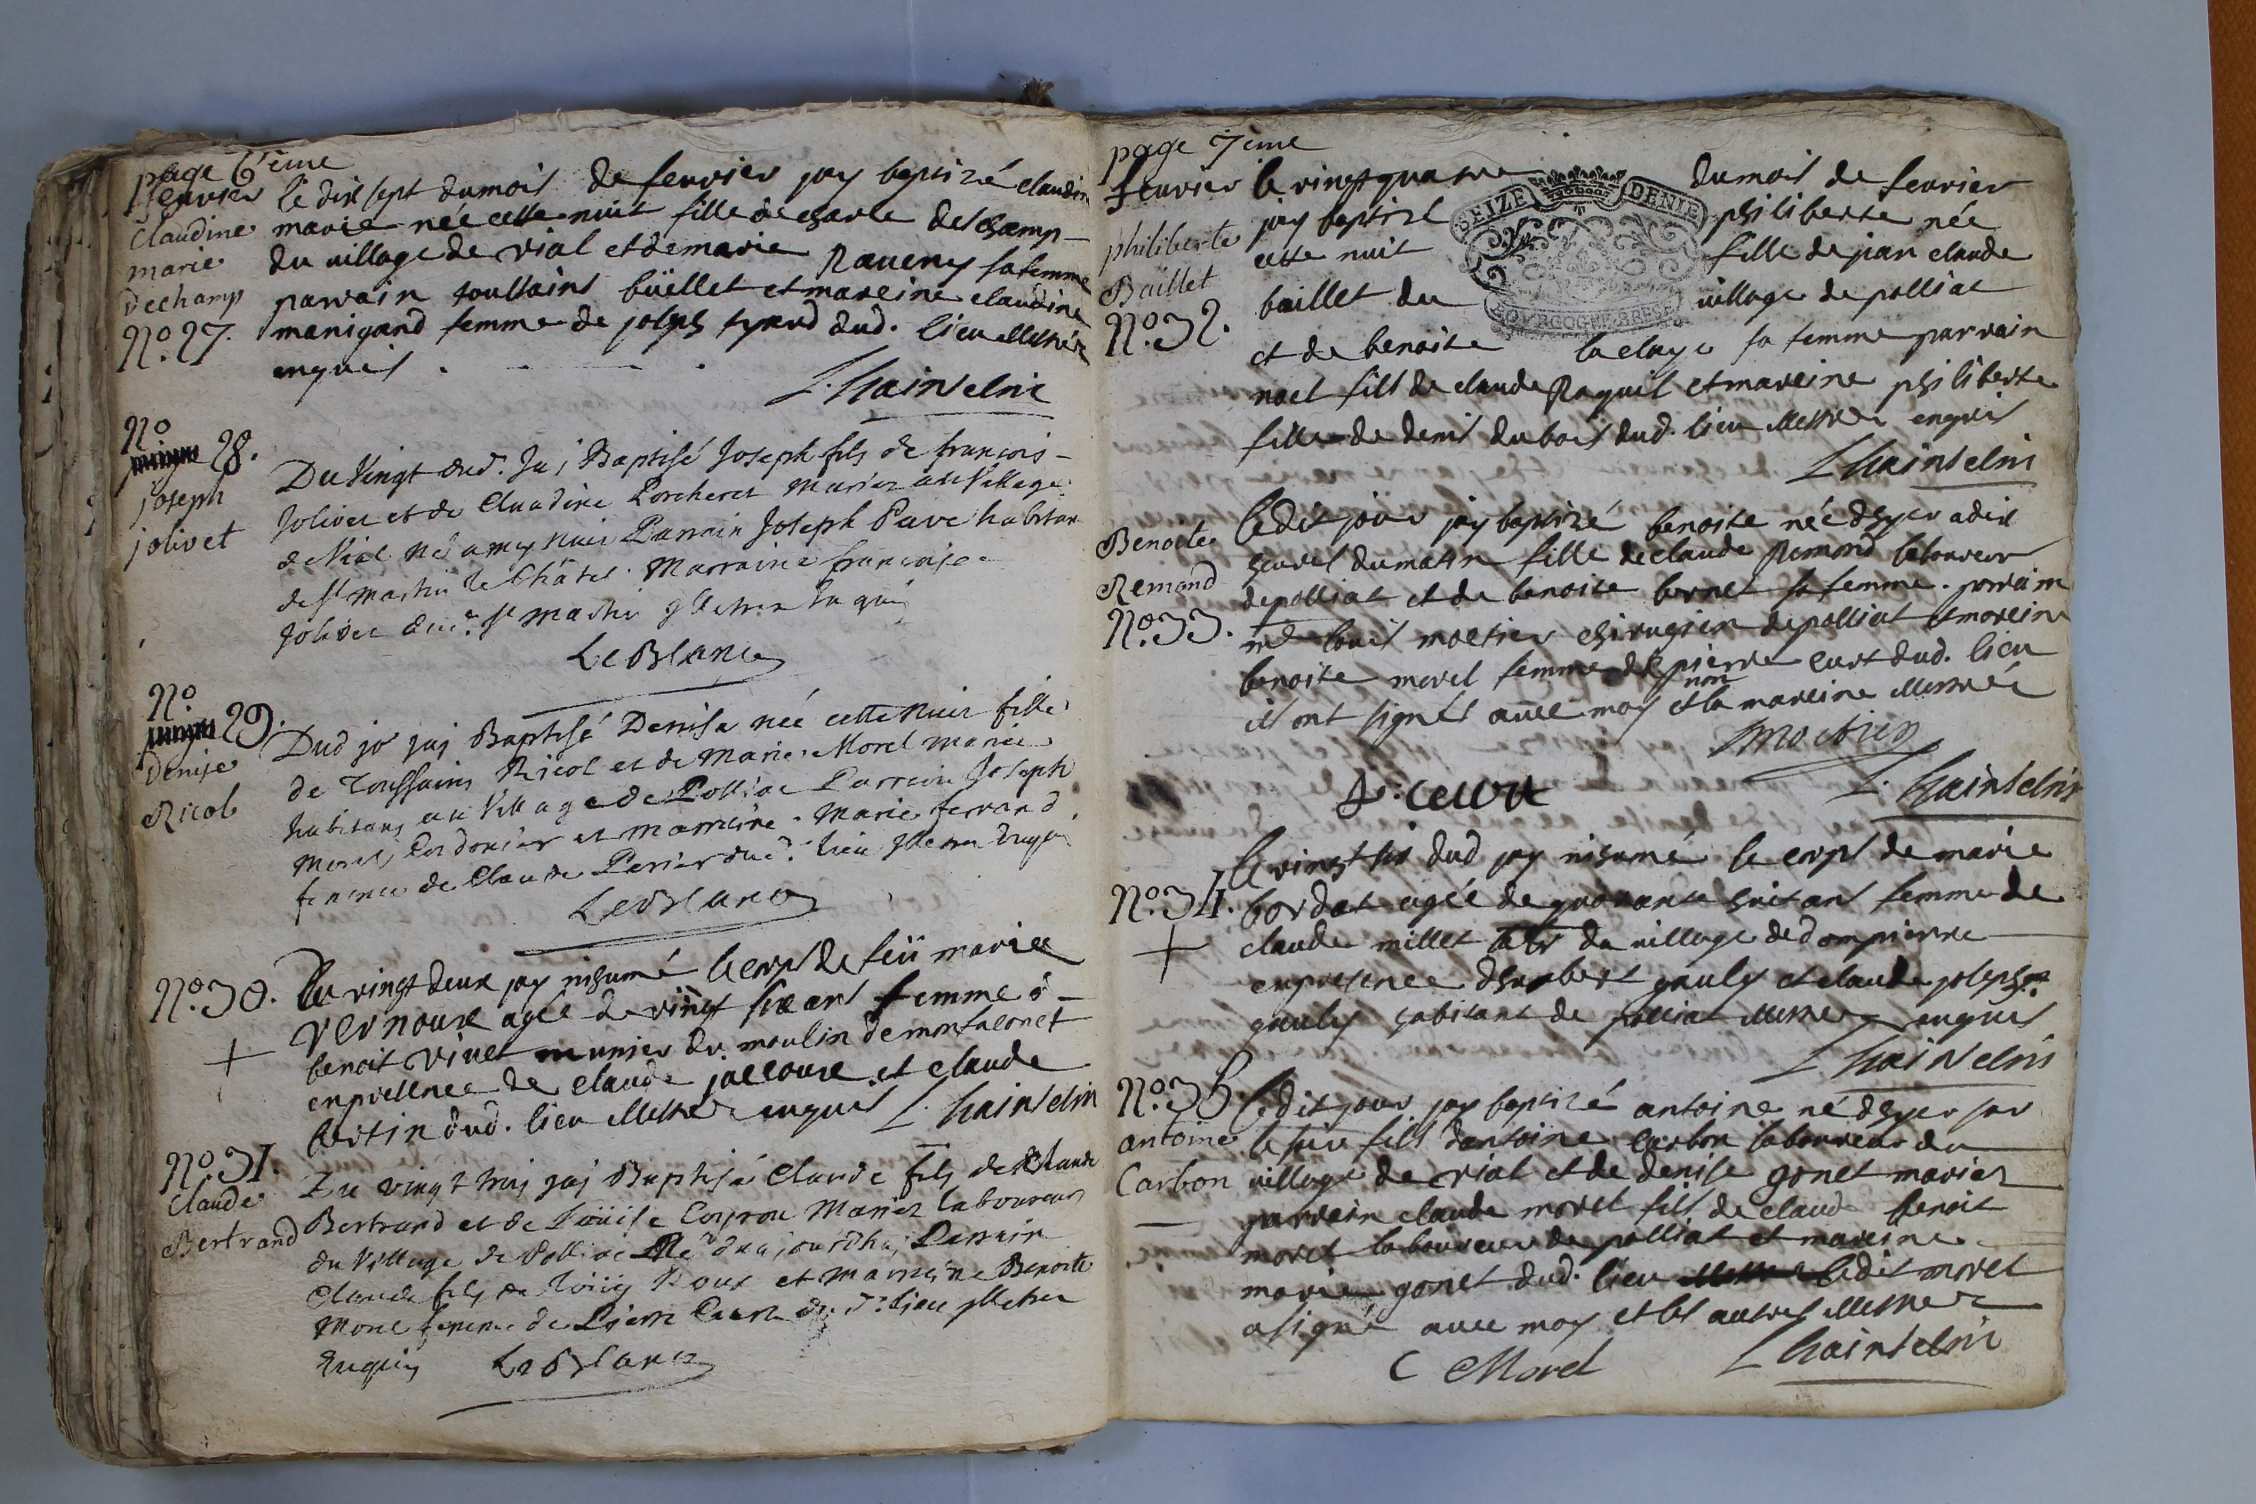 page 6ème
feuvrier le dix sept dumois de feuvrier jay baptizé claudine
Claudine marie née cette nuit fille de charle deschamp
marie du uillage de vial et de marie Raueny sa femme
dechamp parrain toussaint büellet et mareine claudine
No. 27. manigand femme de joseph tyrand dud. lieu illettréz
enquis
L. hainselin
No 28.
joseph
jolivet
Du Vingt dud. Jai Baptisé Joseph fils de françois
Jolivet et de Claudine Porcheret Mariez au Village
de Vial né a my nuit Parrain Joseph Pave habitan
de st martin le Châtel. Marraine françoise
Jolivet dud. st martin Illetrez Enquis
LeBlanc
No 29.
Denise
Ricol
Dud jo jai Baptisé Denise née cette Nuit fille
de Toussains Ricol et de Marie Morel mariez
habitans au Village de Polliat Parrain Joseph
Morel Cordonier et marraine Marie ferrand
femme de Claude Perier dud. lieu Illetrez Enquis
LeBlanc
No. 30. Le vingt deux jay inhumé le corps de feü marie
vernoux agée de vingt six ans femme à
benoit vinet munier du moulin de montfalconet
en presence de claude jacoux et claude
bertin dud. lieu illettrez enquis L. hainselin
No 31.
Claude
Bertrand
Le vingt trois jai Baptisé Claude fils de Claude
Bertrand et de Loüise Mariez laboureurs
du Village de Polliat Né daujourdhuj Parrain
Claude fils de Roux et Marraine Benoite
Morel femme de Pierre Cuert du d. lieu Illetrez
Enquis LeBlanc
page 7ème
feuvrier le vingt quatre dumois de feuvrier
SEIZE DENIE
BOURGOGNE BRESSE
philiberte
Baillet
No. 32.
jay baptizé philiberte née
cette nuit fille de jean claude
baillet du uillage de polliat
et de benoite la claye sa femme parrain
noel fils de claude Raquil et mareine philiberte
fille de denis dubois dud. lieu illettréz enquis
L hainselin
Benoite
Remond
No. 33.
ledit jour jay baptizé benoite née dhyer a dix
heures du matin fille de claude Remond laboureur
de polliat et de benoite bernet sa femme. parrain
mr louis moetier chirugien de polliat et mareine
benoite morel femme de pierre cuert dud. lieu
non
ils ont signés avec moy et la mareine illettrée
Moetier
P. cuert
L. hainselin
No. 34.
Le vingt six dud jay inhumé le corps de marie
bordat agée de quarante huit ans femme de
claude millet labr du uillage de dompierre
en presence dhubert gauly et claude joseph
gauly habitant de polliat illettrez enquis
L hainselin
No. 35.
antoine
Carbon
ledit jour jay baptizé antoine né dhyer sur
le soir fils dantoine carbon laboureur du
uillage de vial et de denise gonet mariez
parrein claude morel fils de claude benoit
morel laboureur de polliat et mareine
marie gonet dud. lieu ledit morel
a signé avec moy et les autres illettrez
C Morel
L hainselin